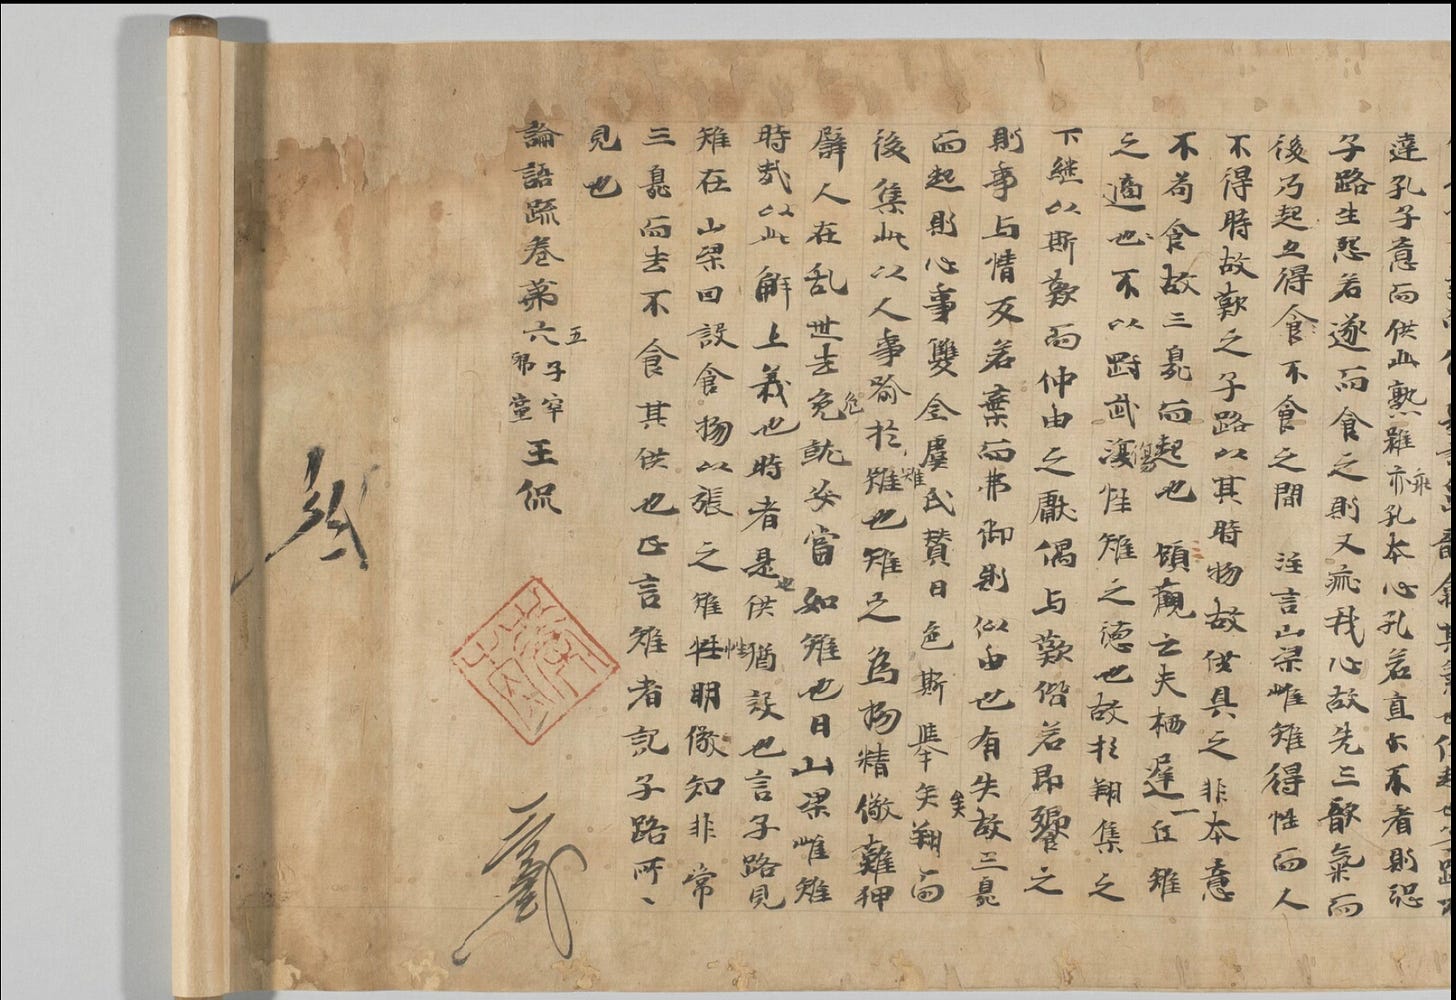 達孔子意而供此熟雉乖孔本心孔若直尒不者則恐
子路生怨若遂而食之則又乖我心故先三歎氣而
後乃起立得食不食之間 注言山梁雌雉得性而人
不得時故歎之子路以其時物故供具之非本意
不苟食故三臭而起也 顧觀云夫栖遲一丘雉
之適也不以武傷性雉之德也故於翔集之
下継以斯歎而仲由之獻偶与歎偕若即饗之
則事与情反若棄而弗御則似由也有失故三臭
而起則心事雙全虞氏賛曰色斯舉矣翔而
後集此以人事喻於雉也雉之為物精儆難狎
譬人在乱世去危就安當如雉也曰山梁雌雉
時哉以此解上義也時者是也供猶設也言子路見
雉在山梁因設食物以張之雉性明儆知非常
三臭而去不食其供也正言雉者記子路所
見也
論語疏巻第六 五 子罕 郷黨 王侃